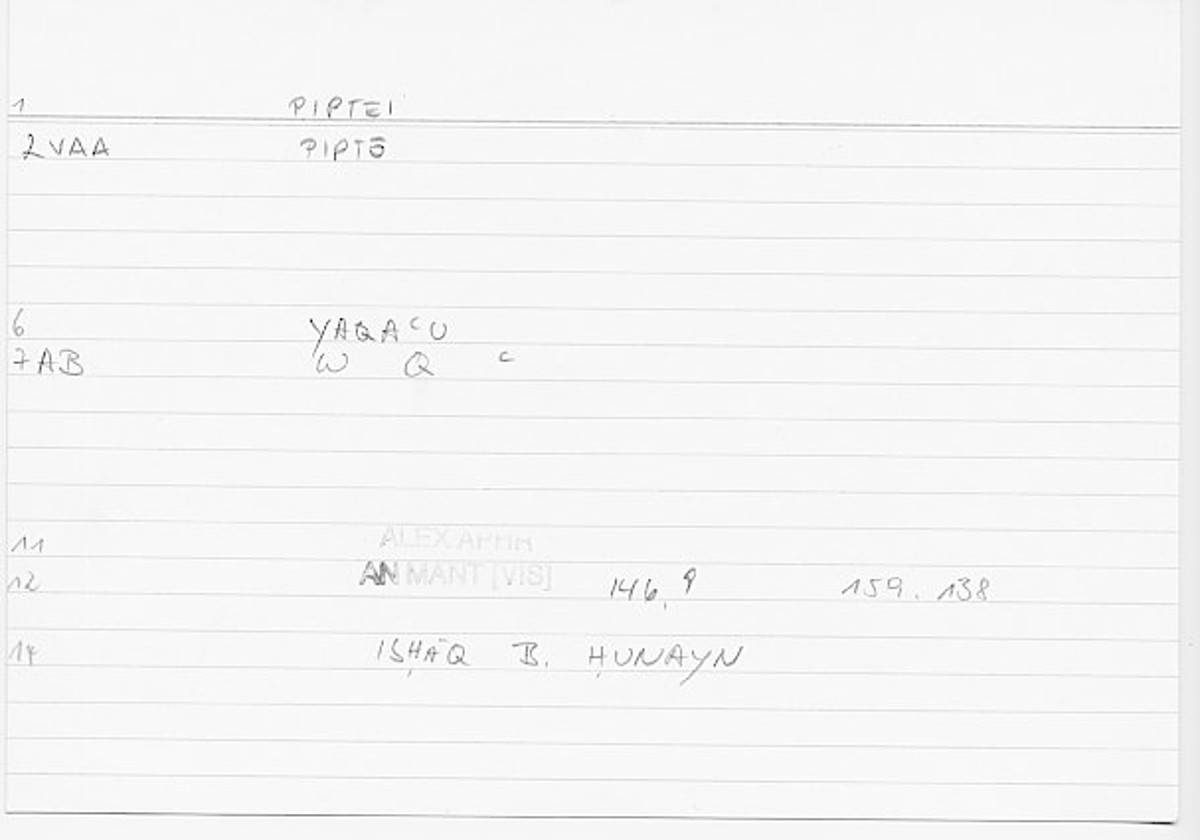 1 PIPTEI
2VAA PIPTŌ
6 YAQAᶜU
7AB W Q ᶜ
11 ALEX APHR
12 AN MANT [VIS] 146,9 159.138
14 ISḤĀQ B. ḤUNAYN